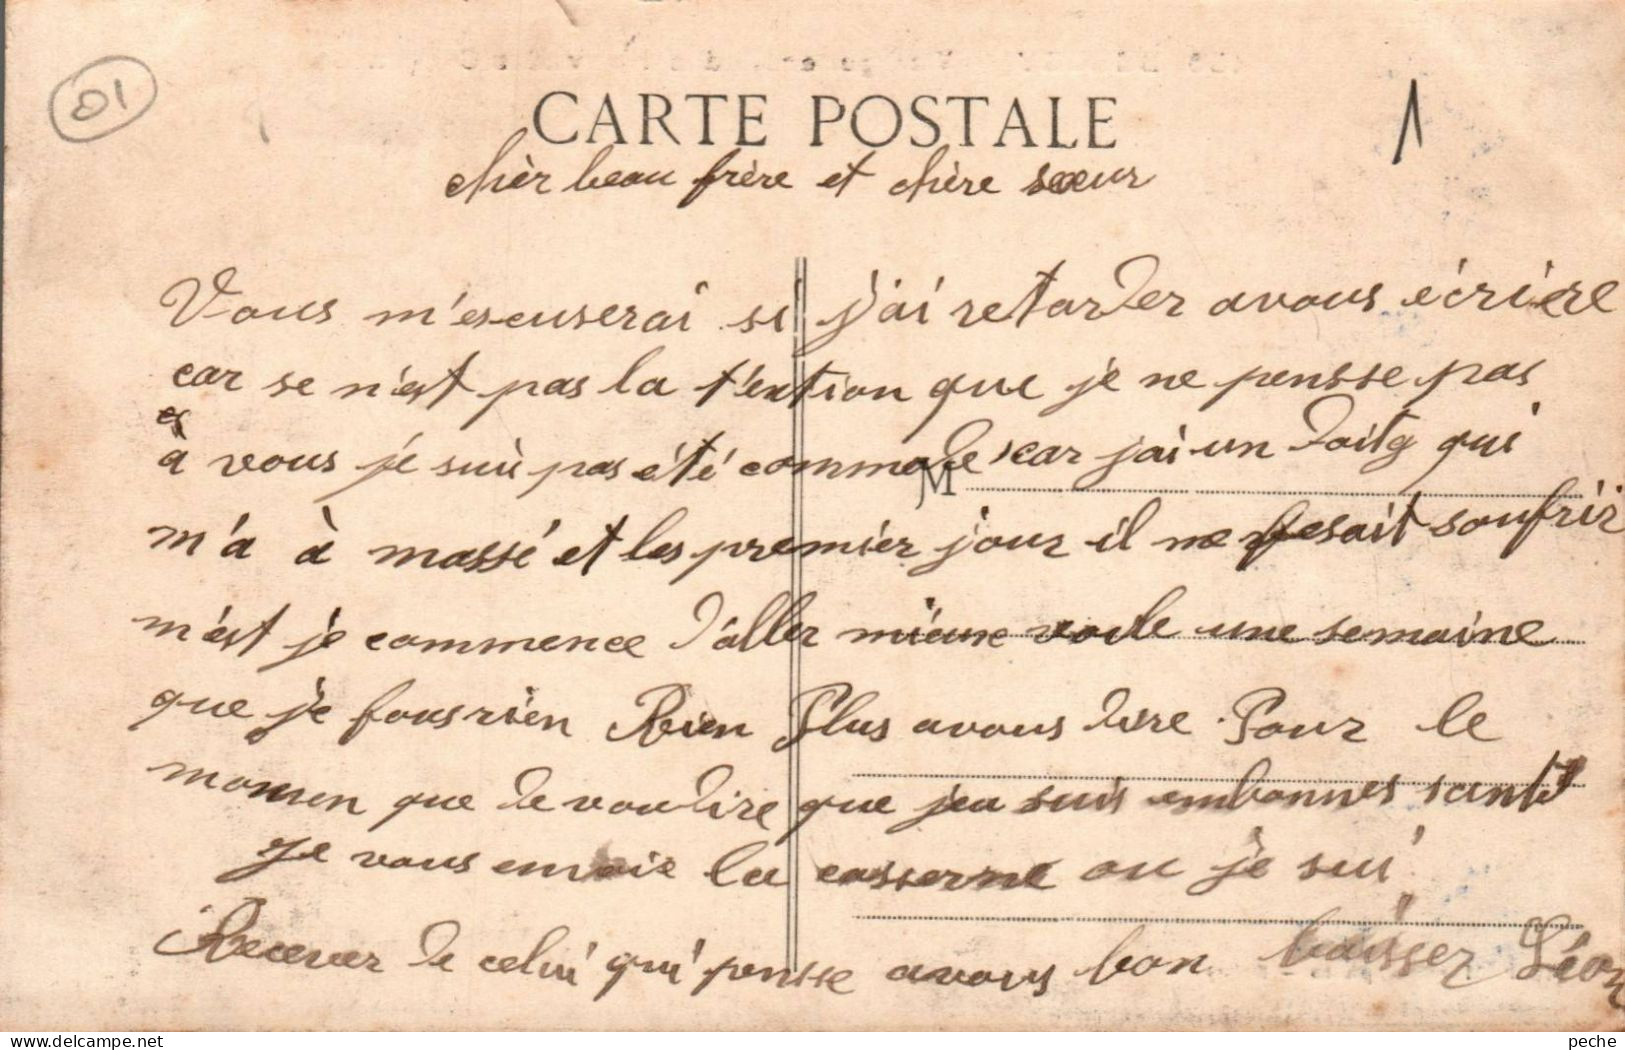 01
CARTE POSTALE
1
chèr beau frère et chère sœur
Vous m'escuserai si j'ai retarder avous écriere
car se n'est pas la t'extion que je ne pensse pas
à vous je suis pas été commode car j'ai un doitg qui
M
m'a à massé et les premier jour il me fesait soufrir
m'est je commence d'aller mieuse voile une semaine
que je fous rien Rien Plus avous dire Pour le
momen que de vou dire que jeu suis embonnes santé
Je vous envoie la casserne ou je sui
Recever de celui qui pensse avous bon baisser Léon
peche